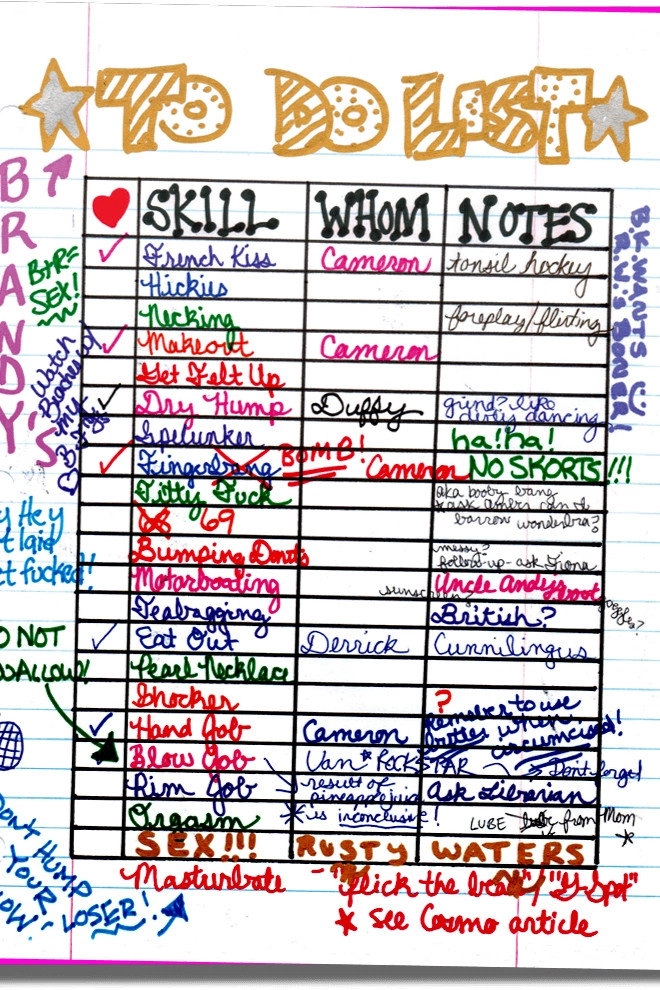 TO DO LIST
BRANDY'S
SKILL WHOM NOTES
French Kiss Cameron tonsil hockey
Hickies
Necking foreplay/flirting
Makeout Cameron
Get Felt Up
Dry Hump Duffy grind? like dirty dancing
Spelunker ha! ha!
Fingerbang BOMB! Cameron NO SKORTS!!!
Titty Fuck aka booby bang
*ask
borrow wonderbra?
68 69
Bumping Donuts messy?
follow up - ask Fiona
Motorboating sunscreen? Uncle Andy's
Teabagging British?
Eat Out Derrick Cunnilingus
Pearl Necklace
Shocker ?
Hand Job Cameron Remember to use
when circumcised!
Blow Job Van * ROCKSTAR Don't forget
Rim Job result of pineapple juice Ask Librarian
* is inconclusive!
Orgasm LUBE from Mom
*
SEX!!! RUSTY WATERS
Masturbate - "flick the bean", "G-Spot"
* see Cosmo article
SEX!
Watch
my
B.K. WANTS
R.W.'S BONER!
Hey
laid
fucked!!
DO NOT
SWALLOW!
DON'T HUMP
YOUR
LOSER!